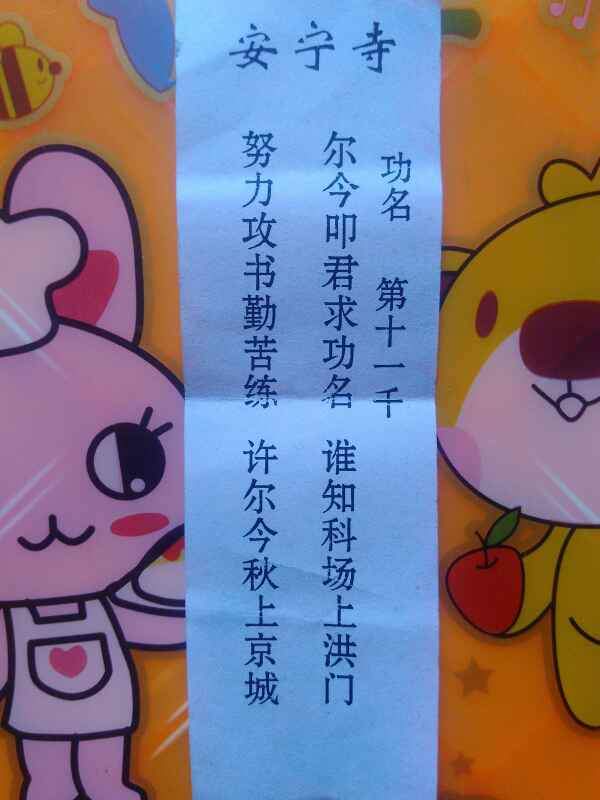 安宁寺
功名 第十一千
尔今叩君求功名 谁知科场上洪门
努力攻书勤苦练 许尔今秋上京城